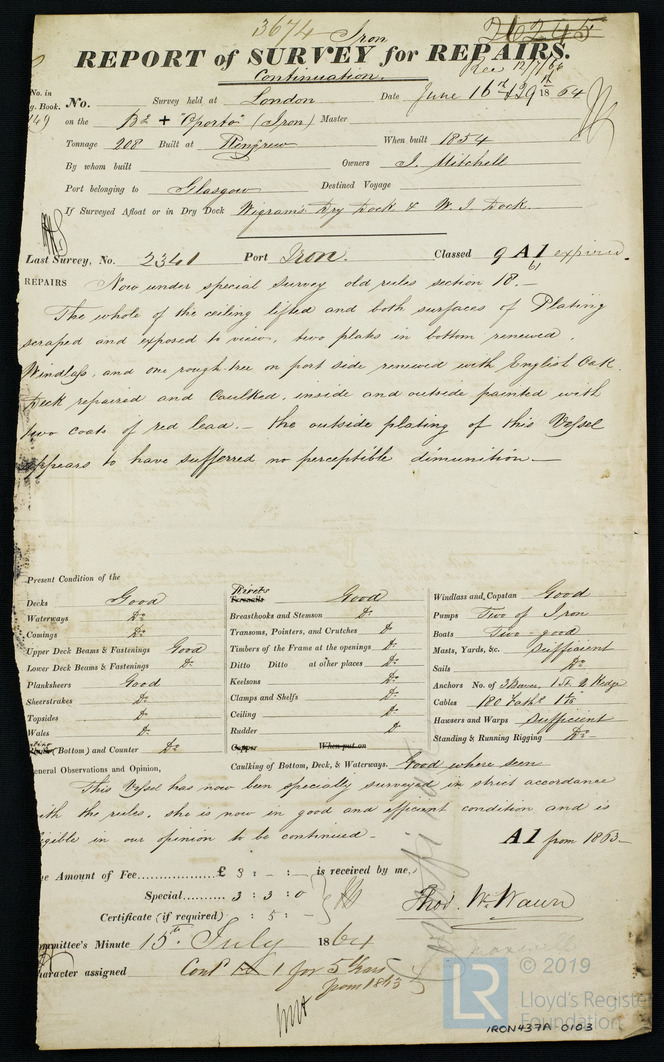 3674 Iron 26245
REPORT of SURVEY for REPAIRS.
Continuation. Rec 12/7/64
No. in
g. Book. No. Survey held at London Date June 16th & 29th 1864
149 on the Bk + "Oporto" (Iron) Master
Tonnage 208 Built at Renfrew When built 1854
By whom built Owners J. Mitchell
Port belonging to Glasgow Destined Voyage
If Surveyed Afloat or in Dry Dock Wigrams Dry Dock & W. I. Dock.
Last Survey, No. 2341 Port Iron. Classed 9 A1 expired.
61
REPAIRS Now under special survey old rules section 18.—
The whole of the ceiling lifted and both surfaces of Plating
scraped and exposed to view, two plates in bottom renewed,
Windlass, and one rough-tree on port side renewed with English Oak.
Deck repaired and Caulked, inside and outside painted with
two coats of red lead.— the outside plating of this Vessel
appears to have sufferred no perceptible dimunition—
Present Condition of the
Decks Good
Waterways Do
Comings Do
Upper Deck Beams & Fastenings Good
Lower Deck Beams & Fastenings Do
Planksheers Good
Sheerstrakes Do
Topsides Do
Wales Do
(Bottom) and Counter Do
Rivets
Treenails Good
Breasthooks and Stemson Do
Transoms, Pointers, and Crutches Do
Timbers of the Frame at the openings Do
Ditto Ditto at other places Do
Keelsons Do
Clamps and Shelfs Do
Ceiling Do
Rudder Do
Copper When put on
Caulking of Bottom, Deck, & Waterways. Good where seen
Windlass and Capstan Good
Pumps Two of Iron
Boats Two - good
Masts, Yards, &c. Sufficient
Sails Do
Anchors No. of 3 Bower, 1 St. 2 Kedge
Cables 180 Faths 1 1/16
Hawsers and Warps Sufficient
Standing & Running Rigging Do
General Observations and Opinion,
This Vessel has now been specially surveyed in strict accordance
with the rules, she is now in good and efficient condition and is
eligible in our opinion to be continued - A1 from 1863—
he Amount of Fee.................. £ 3 : - : - is received by me,
Special.......... 3 : 3 : 0
Certificate (if required) : 5 : - Thos. W. Wawn
mmittee's Minute 15th July 1864
haracter assigned Contd A 1 for 5 Years
from 1863
© 2019
LR Lloyd's Register
Foundation
IRON437A 0103